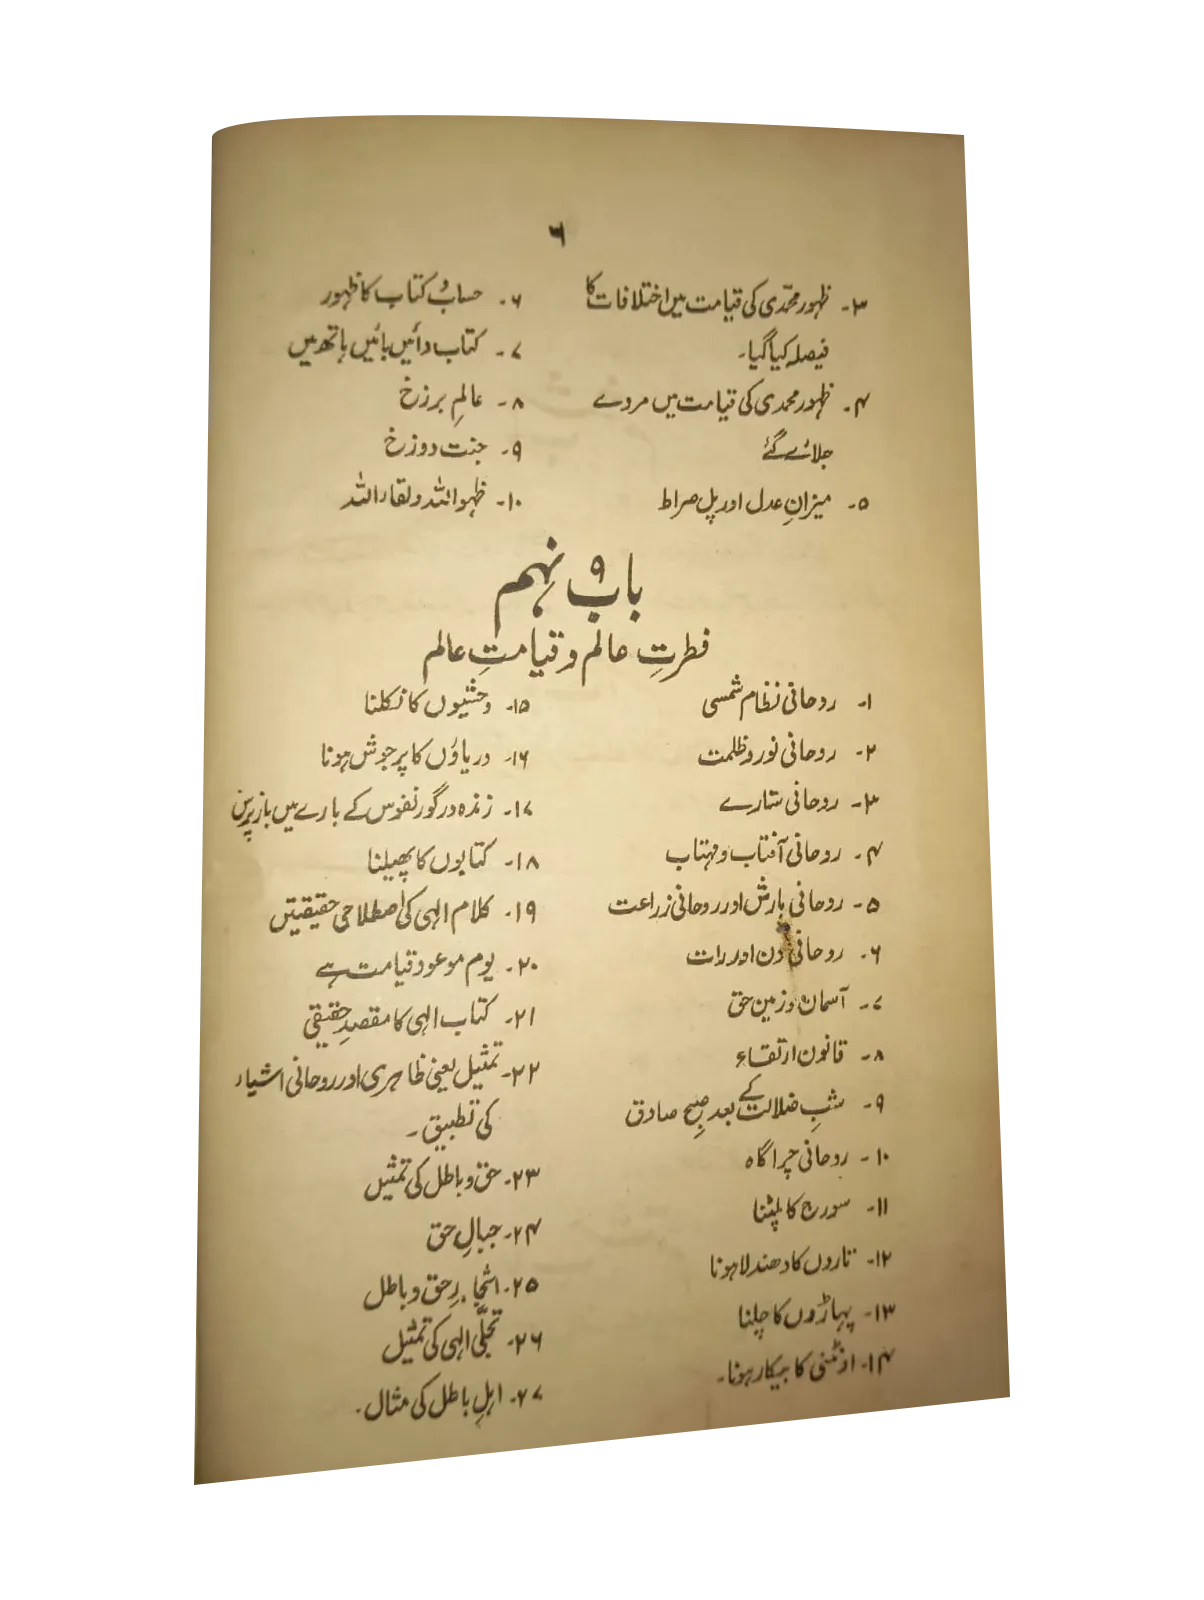 ۳
۳۔ ظہور محمّدی کی قیامت میں اختلافات کا
فیصلہ کیا گیا۔
۴۔ ظہور محمدی کی قیامت میں مردے
جلائے گئے
۵۔ میزانِ عدل اور پل صراط
۶۔ حساب و کتاب کا ظہور
۷۔ کتاب دائیں بائیں ہاتھ میں
۸۔ عالمِ برزخ
۹۔ جنت دوزخ
۱۰۔ ظہور اللہ و لقاء اللہ
باب ۹ نہم
فطرتِ عالم و قیامتِ عالم
۱۔ روحانی نظام شمسی
۲۔ روحانی نور و ظلمت
۳۔ روحانی ستارے
۴۔ روحانی آفتاب و مہتاب
۵۔ روحانی بارش اور روحانی زراعت
۶۔ روحانی دن اور رات
۷۔ آسمان و زمین حق
۸۔ قانون ارتقاء
۹۔ شبِ ضلالت کے بعد صبحِ صادق
۱۰۔ روحانی چراگاہ
۱۱۔ سورج کا پلٹنا
۱۲۔ تاروں کا دھندلا ہونا
۱۳۔ پہاڑوں کا چلنا
۱۴۔ اونٹنی کا بیکار ہونا۔
۱۵۔ وحشیوں کا نکلنا
۱۶۔ دریاؤں کا پرجوش ہونا
۱۷۔ زندہ درگور نفوس کے بارے میں بازپرس
۱۸۔ کتابوں کا پھیلنا
۱۹۔ کلام الہی کی اصطلاحی حقیقتیں
۲۰۔ یوم موعود قیامت ہے
۲۱۔ کتاب الہی کا مقصدِ حقیقی
۲۲۔ تمثیل یعنی ظاہری اور روحانی اشیاء
کی تطبیق۔
۲۳۔ حق و باطل کی تمثیل
۲۴۔ جبالِ حق
۲۵۔ اشجارِ حق و باطل
۲۶۔ تجلّی الہی کی تمثیل
۲۷۔ اہلِ باطل کی مثال۔